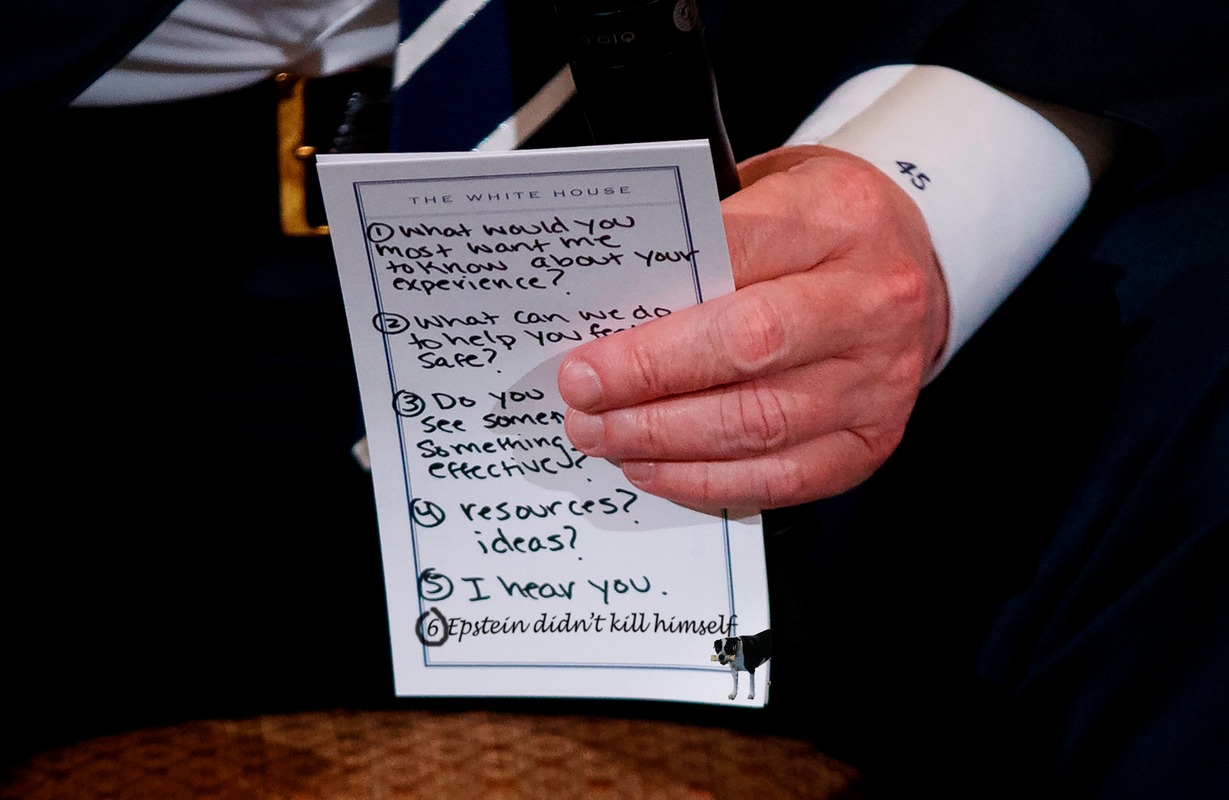 THE WHITE HOUSE
① What would you
most want me
to know about your
experience?
② What can we do
to help you
safe?
③ Do you
see
something
effective?
④ resources?
ideas?
⑤ I hear you.
⑥ Epstein didn't kill himself
45